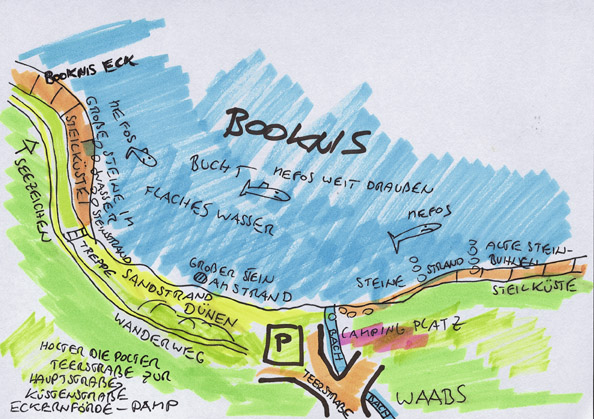 BOOKNIS ECK
MEFOS
GROßE STEINE IM
WASSER
STEILKÜSTE
STEINSTRAND
BOOKNIS
BUCHT
MEFOS WEIT DRAUßEN
FLACHES WASSER
MEFOS
SEEZEICHEN
TREPPE
SANDSTRAND
DÜNEN
WANDERWEG
GROßER STEIN
AM STRAND
STEINE
STRAND
ALTE STEIN-
BUHNEN
STEILKÜSTE
BACH
CAMPING PLATZ
P
TEERSTRAßE
BACH
WAABS
HOLTER DIE POLTER
TEERSTRAßE ZUR
HAUPTSTRAßE/
KÜSTENSTRAßE
ECKERNFÖRDE - DAMP